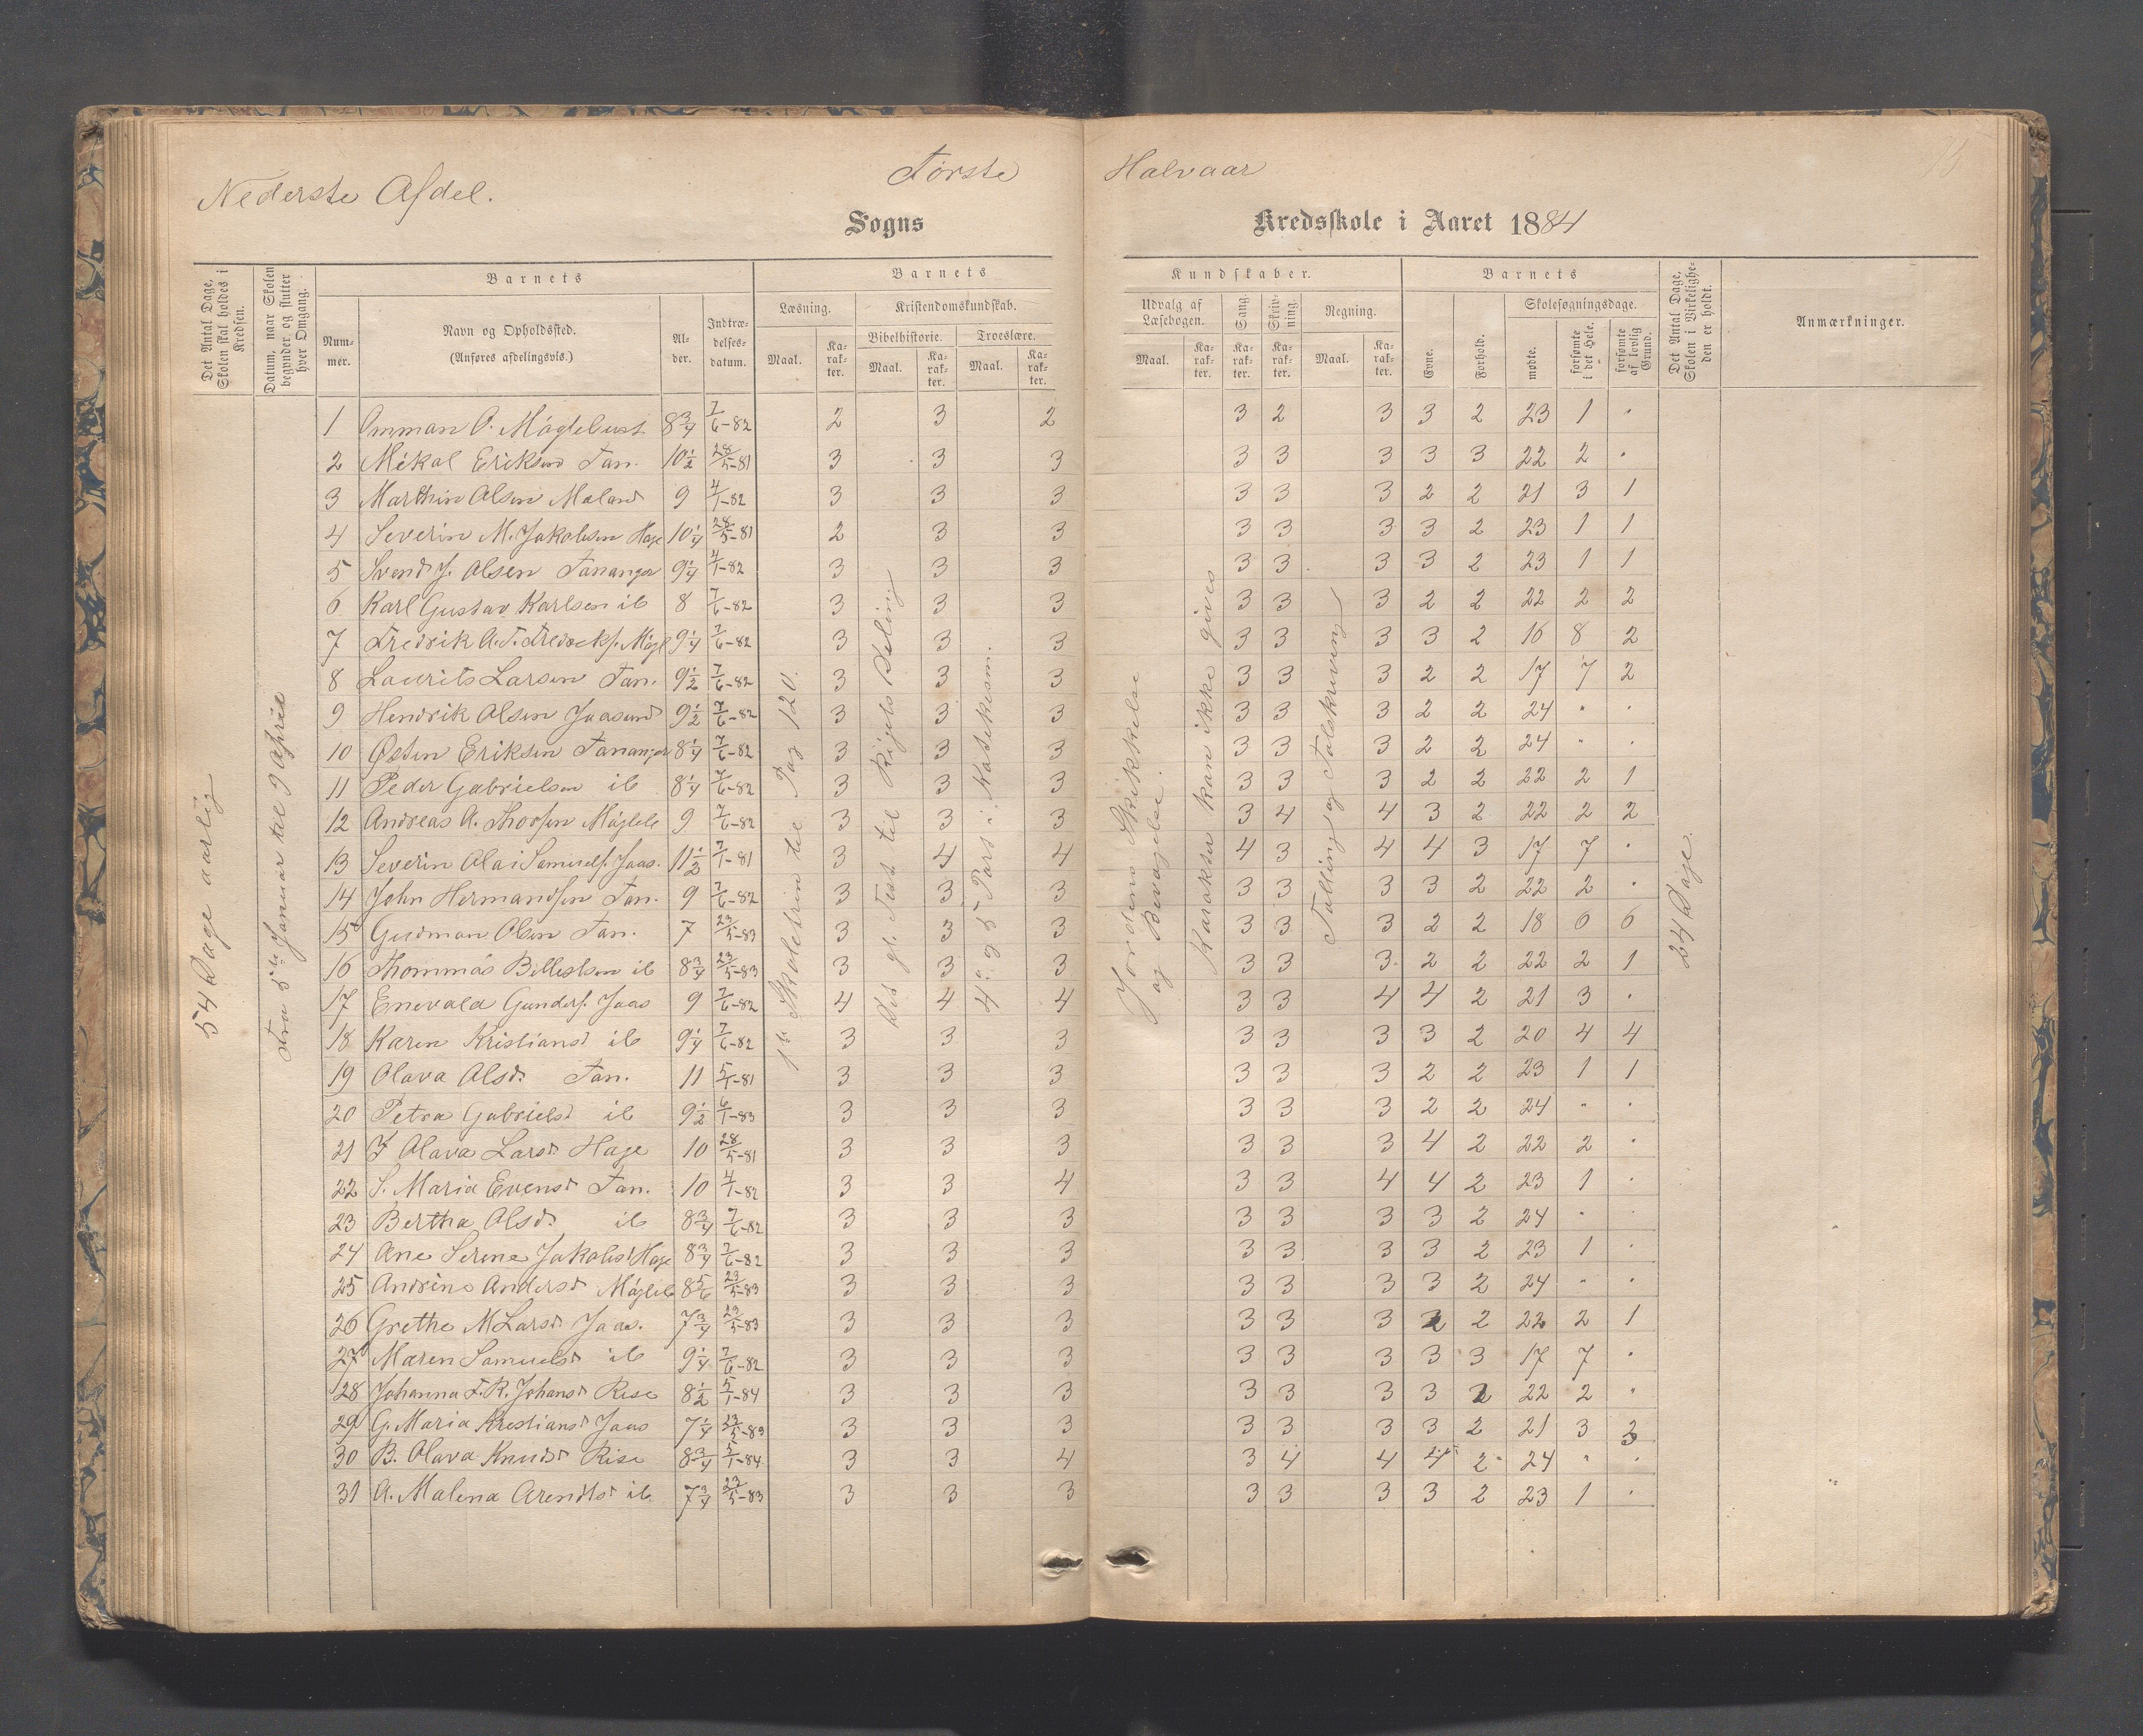 Nederste Afdel.
Første Halvaar
Sogns Kredsskole i Aaret 1884
Det Antal Dage, Skolen skal holdes i Kredsen.
Datum, naar Skolen begynder og slutter hver Omgang.
Barnets
Nummer.
Navn og Opholdssted. (Anføres afdelingsvis.)
Alder.
Indtrædelsesdatum.
Barnets Kundskaber.
Læsning.
Maal.
Karakter.
Kristendomskundskab.
Bibelhistorie.
Maal.
Karakter.
Troeslære.
Maal.
Karakter.
Udvalg af Læsebogen.
Maal.
Karakter.
Sang.
Karakter.
Skrivning.
Karakter.
Regning.
Maal.
Karakter.
Barnets
Evne.
Forhold.
Skolesøgningsdage.
mødte.
forsømte i det Hele.
forsømte af lovlig Grund.
Det Antal Dage, Skolen i Virkeligheden er holdt.
Anmærkninger.
54 Dage aarlig
Fra 5te Januar til 9 April
til Pag 120.
til Rigets Deling
4de og 5 Part i Katekism.
Jordens Skikkelse og Bevægelse.
Karakter kan ikke gives
Tælling og Talskrivning
24 Dage.
1 Omman O. Møglebust 8 3/4 7/6-82 2 3 2 3 2 3 3 2 23 1 .
2 Mikal Eriksen Tan. 10 1/2 28/5-81 3 3 3 3 3 3 3 3 22 2 .
3 Marthin Olsen Meland 9 4/1-82 3 3 3 3 3 3 2 2 21 3 1
4 Severin M. Jakobsen Hage 10 1/4 28/5-81 2 3 3 3 3 3 3 2 23 1 1
5 Svend J. Olsen Tananger 9 1/4 4/1-82 3 3 3 3 3 3 3 2 23 1 1
6 Karl Gustav Karlsen ib 8 7/6-82 3 3 3 3 3 3 2 2 22 2 2
7 Fredrik A. T. Fredreks. Møgl 9 1/4 7/6-82 3 3 3 3 3 3 3 2 16 8 2
8 Laurits Larsen Tan. 9 1/2 7/6-82 3 3 3 3 3 3 2 2 17 7 2
9 Hendrik Olsen Jaasund 9 1/2 7/6-82 3 3 3 3 3 3 2 2 24 " .
10 Østen Eriksen Tananger 8 1/4 7/6-82 3 3 3 3 3 3 2 2 24 " .
11 Peder Gabrielsen ib 8 1/4 7/6-82 3 3 3 3 3 3 2 2 22 2 1
12 Andreas A. Thorsen Møgleb 9 7/6-82 3 3 3 3 4 4 3 2 22 2 2
13 Severin Olai Samuels. Jaas. 11 1/2 7/1-81 3 4 4 4 3 4 4 3 17 7 .
14 John Hermandsen Tan. 9 7/6-82 3 3 3 3 3 3 3 2 22 2 .
15 Gudman Olsen Tan. 7 23/5-83 3 3 3 3 3 3 2 2 18 6 6
16 Thommas Billestsen ib 8 3/4 23/5-83 3 3 3 3 3 3 2 2 22 2 1
17 Enevald Gunders. Jaas 9 7/6-82 4 4 4 3 3 4 4 2 21 3 .
18 Karen Kristiansd ib 9 1/4 7/6-82 3 3 3 3 3 3 3 2 20 4 4
19 Olava Olsd. Tan. 11 5/1-81 3 3 3 3 3 3 2 2 23 1 1
20 Petra Gabrielsd ib 9 1/2 6/1-83 3 3 3 3 3 3 2 2 24 " .
21 I Olava Larsd Hage 10 28/5-81 3 3 3 3 3 3 4 2 22 2 .
22 S. Maria Evensd Tan. 10 4/1-82 3 3 4 3 3 4 4 2 23 1 .
23 Bertha Olsd. ib 8 3/4 7/6-82 3 3 3 3 3 3 3 2 24 " .
24 Ane Serine Jakobsd Hage 8 3/4 7/6-82 3 3 3 3 3 3 3 2 23 1 .
25 Andrine Andersd Møgleb 8 5/6 23/5-83 3 3 3 3 3 3 3 2 24 " .
26 Grethe M Larsd Jaas. 7 3/4 23/5-83 3 3 3 3 3 3 2 2 22 2 1
27 Maren Samuelsd ib 9 1/4 7/6-82 3 3 3 3 3 3 3 3 17 7 .
28 Johanna F. R. Johansd Rise 8 1/2 5/1-84 3 3 3 3 3 3 3 2 22 2 "
29 G. Maria Krestiansd Jaas 7 1/4 23/5-83 3 3 3 3 3 3 3 2 21 3 3
30 B. Olava Knudsd Rise 8 3/4 5/1-84 3 3 4 3 4 4 4 2 24 " .
31 A. Malena Arendtsd ib. 7 3/4 23/5-83 3 3 3 3 3 3 3 2 23 1 .